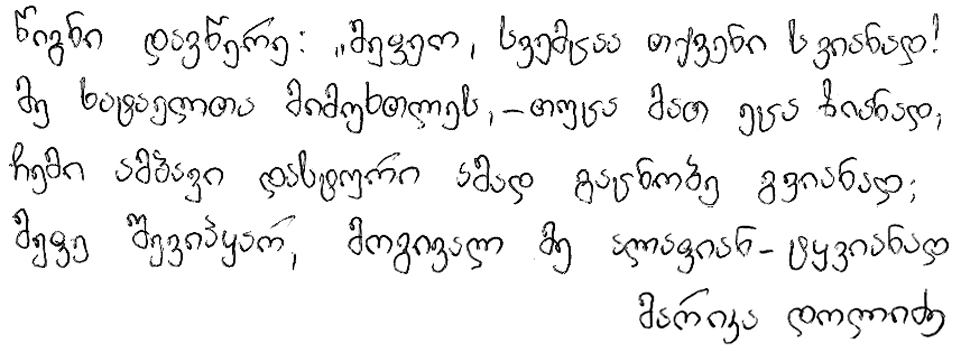 წიგნი დავწერე: „მეფეო, სვემცაა თქვენი სვიანად!
მე ხატაელთა მიმუხთლეს, – თუცა მათ ეცა ზიანად,
ჩემი ამბავი დასტური ამად გაცნობე გვიანად;
მეფე შევიპყარ, მოგივალ მე ალაფიან-ტყვიანად
მარიკა დოლიძე